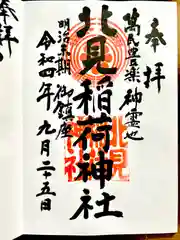 奉拝
萬民豊楽御霊地
北見稲荷神社
明治三期御鎮座
令和四年九月二十五日
奉拝